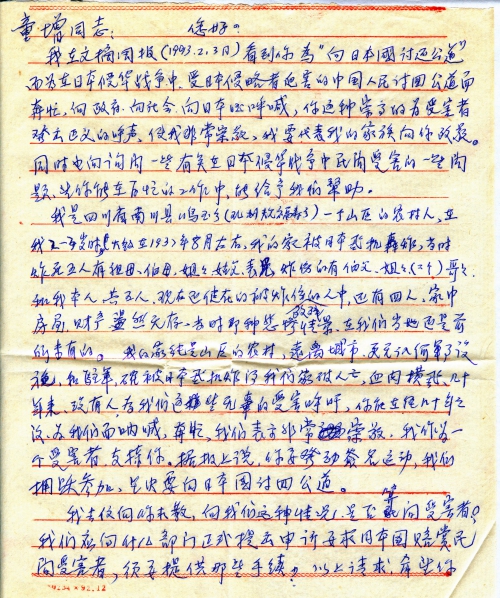 童增同志：
您好。
我在文摘周报（1993.2.3日）看到你为"向日本国讨还公道"
而为在日本侵华战争中，受日本侵略者危害的中国人民讨回公道而
奔忙，向政府、向社会、向日本呼喊，你这种崇高的为受害者
发出正义的呼声，使我非常崇敬，我要代表我的家族向你致敬。
同时也向询问一些有关在日本侵华战争中民间受害的一些问
题，望你能在百忙的工作中，能给予我们帮助。
我是四川省南川县鸣玉乡一个山区的农村人，在
我大约在1937年8月左右，我的家被日本飞机轰炸，当时
炸死五人有祖母、伯母、姐，炸伤的有伯父、姐（二个）哥
和我本人，共五人，现在还健在的被炸伤的人中，还有四人，家中
房屋、财产荡然无存，当时那种悲惨情景，在我们当地还是前
所未有的。我的家就是山区的农村，远离城市，更无任何军事设
施，和驻军，确被日本飞机炸得我们家破人亡，血肉横飞，几十
年来，没有人为我们这种无辜的受害呼吁，你能在几十年之
后，为我们而呐喊，奔忙，我们表示非常崇敬，我作为一
个受害者，支持你，据报上说，你要发动签名运动，我们
踊跃参加，坚决要向日本国讨回公道。
我去信向你求教，向我们这种情况，是否算民间受害者，
我们应向什么部门正式提出申诉要求日本国赔赏民
间受害者，须要提供那些手续？以上请求希望你